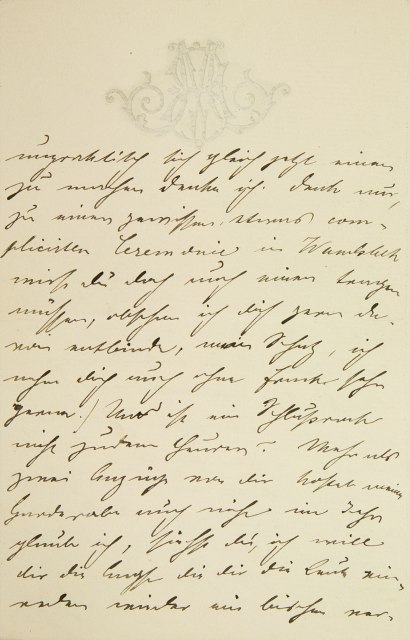 unpraktisch sich gleich jetzt einen
zu machen denke ich. Denk nur,
zu einer gewissen, etwas com-
plicirten Ceremonie in Wandsbek
wirst du doch noch einen tragen
müssen, obschon ich dich gern da-
von entbinde, mein Schatz, ich
nehm dich auch ohne Frack sehr
gerne.) Und ist ein Schlußrock
nicht zudem theurer? Mehr als
zwei Anzüge von dir kostet meine
Garderobe auch nicht im Jahr
glaube ich, siehst du, ich will
dir die Angst die dir die Leute ein-
reden wieder ein bischen ver-